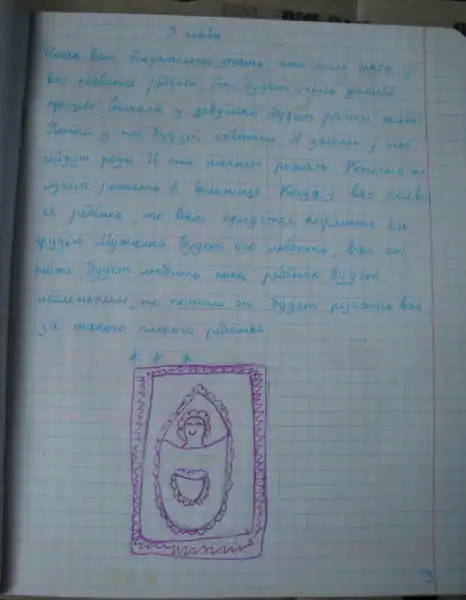 9 глава
Итак вам обязательно знать, что после секса у
вас появится ребёнок. Это будет очень долгий
процесс. Сначала у девушки будет расти живот
Потом у неё будут схватки. А затем у неё
пойдут роды. И она начнёт рожать. Конечно же
лучше рожать в больнице. Когда у вас появи
ся ребёнок, то вам придётся кормить его
грудью. Мужчина будет его любить, вас он
тоже будет любить пока ребёнок будет
маленьким, но потом он будет ругать вас
за такого плохого ребёнка